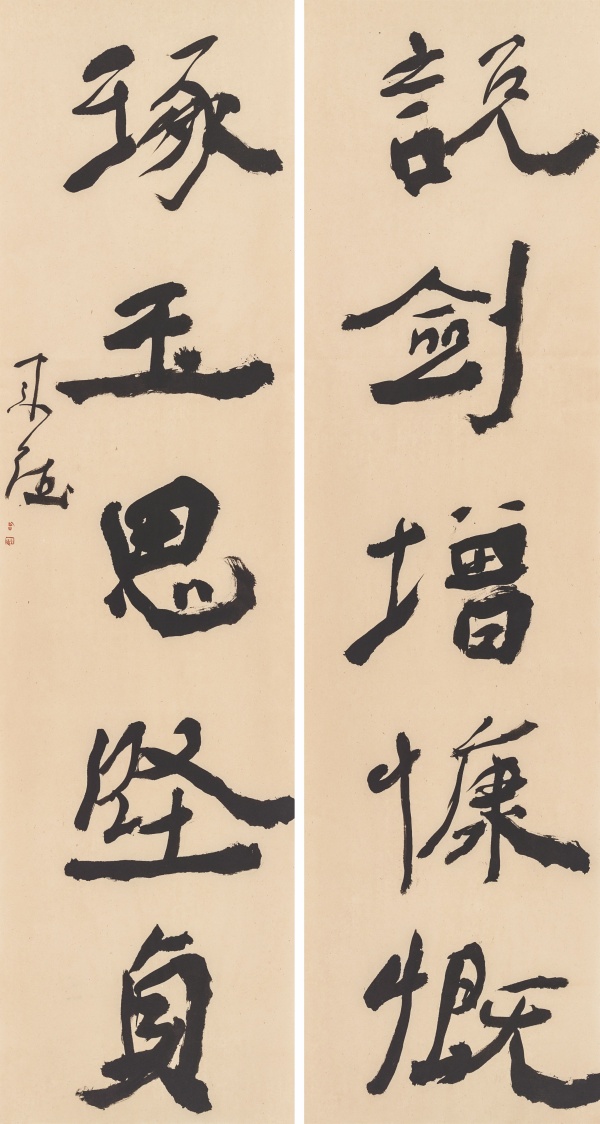 說劍增慷慨
琢玉思堅貞
來德